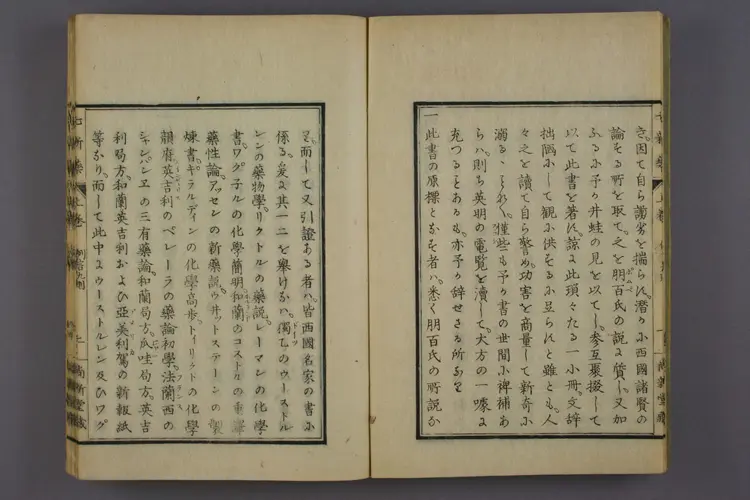 き。因て自ら謭劣を揣らに。潜かに西國諸賢の
論をる所を取て。之を朋百氏の説に質し。又加
ふるに予か井蛙の見を以てし。参互裒掇して
以て此書を著に。諒に此瑣々たる一小冊。文辞
拙陋にして観に供をるに足らにと雖とも。人
々之を讀て自ら警め。功害を商量して新奇に
溺るゝことなく。僅些も予か書の世間に裨補あ
らハ。則ち英明の電覧を瀆して。大方の一噱に
充つることあるも。亦予か辞せさる所なり
一此書の原標とをる者ハ。悉く朋百氏の所説に
て。而して又引證ある者ハ。皆西國名家の書に
係る。爰に其一二を舉けるに。獨乙のウーストル
レンの藥物學。リクトルの藥説。レーマンの化學
書。ワグ子ルの化學簡明。和蘭のコストルの
藥性論。アッセンの新藥説。ウ井ットステーンの製
煉書。ギラルディンの化學高歩。トイリクトの化學
韻府。英吉利のペレーラの藥論初學。法蘭西の
シャンパンエの三有藥論。和蘭局方。瓜哇局方。英吉
利局方。和蘭英吉利および亞美利駕の新報紙
等なり。而して此中にウーストルレン及ひワグ
七新藥 上巻
尚新堂藏